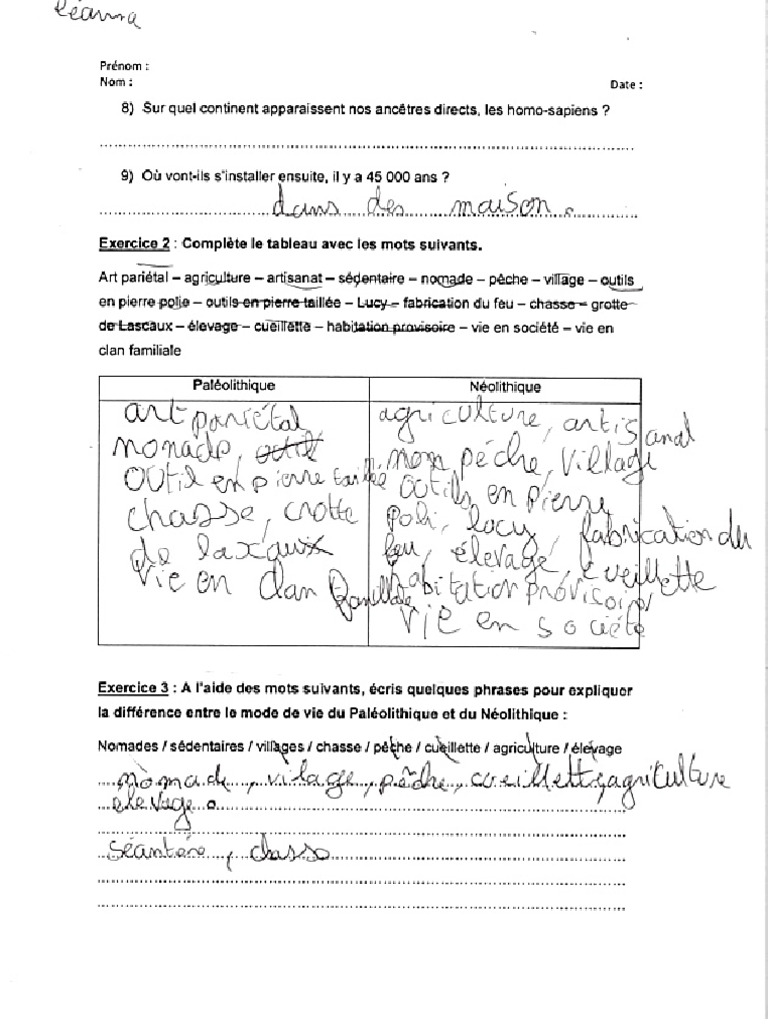 Léanna
Prénom :
Nom :
Date :
8) Sur quel continent apparaissent nos ancêtres directs, les homo-sapiens ?
9) Où vont-ils s'installer ensuite, il y a 45 000 ans ?
dans des maison.
Exercice 2 : Complète le tableau avec les mots suivants.
Art pariétal – agriculture – artisanat – sédentaire – nomade – pêche – village – outils
en pierre polie – outils en pierre taillée – Lucy – fabrication du feu – chasse – grotte
de Lascaux – élevage – cueillette – habitation provisoire – vie en société – vie en
clan familiale
Paléolithique
art pariétal,
nomade, outil
outil en pierre taillée
chasse, crotte
de laxaux
vie en clan familiale
Néolithique
agriculture, artisanal
nom pêche, village
outils en pierre
poli, lucy, fabrication du
feu, élevage, cueillette
habitation provisoire
vie en société
Exercice 3 : A l'aide des mots suivants, écris quelques phrases pour expliquer
la différence entre le mode de vie du Paléolithique et du Néolithique :
Nomades / sédentaires / villages / chasse / pêche / cueillette / agriculture / élevage
nomade, village, pêche, cueillette, agriculture
elevage.
séantère, chasse